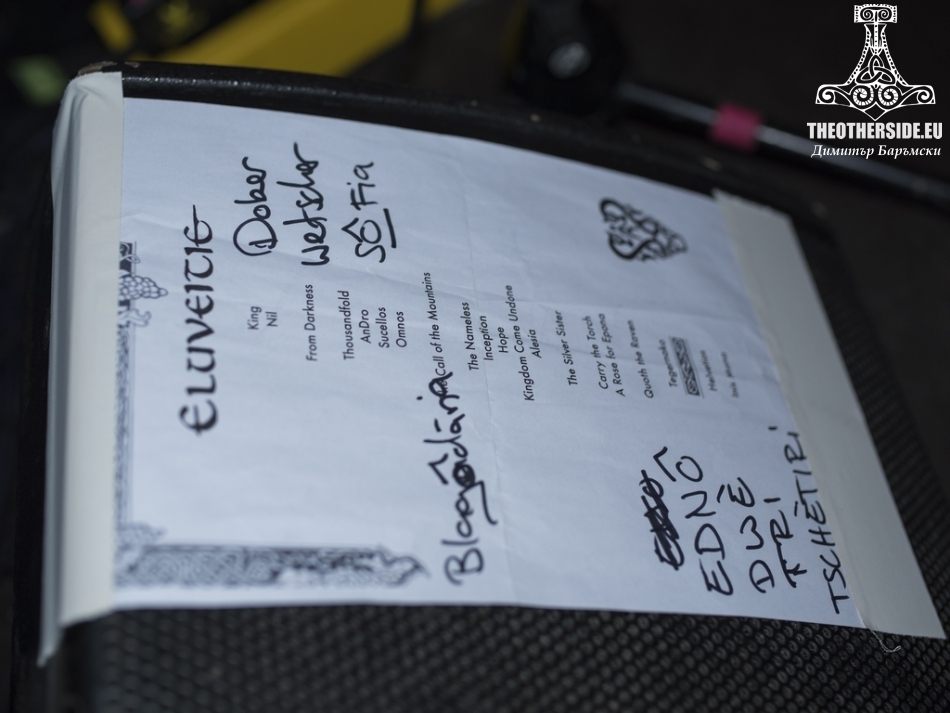 ELUVEITIE
Dober
Wetscher
SÔFia
King
Nil
From Darkness
Thousandfold
AnDro
Sucellos
Omnos
Call of the Mountains
Blagodâria
The Nameless
Inception
Hope
Kingdom Come Undone
Alesia
The Silver Sister
Carry the Torch
A Rose for Epona
Quoth the Raven
Tegernakô
Helvetios
Inis Mona
EDNÔ
DWÈ
TRI
TSCHÈTIRI
THEOTHERSIDE.EU
Димитър Баръмски